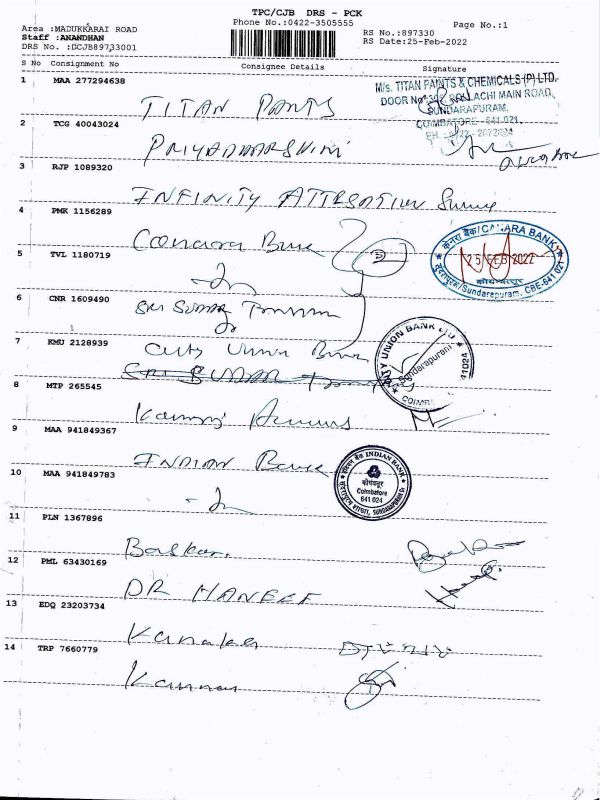 TPC/CJB DRS - PCK
Area :MADUKKARAI ROAD
Phone No.:0422-3505555
Page No.:1
Staff :ANANDHAN
RS No.:897330
DRS No. :DCJB89733001
RS Date:25-Feb-2022
S No Consignment No Consignee Details Signature
1 MAA 277294638
M/s. TITAN PAINTS & CHEMICALS (P) LTD.
DOOR No
MAIN ROAD,
SUNDARAPURAM,
COIMBATORE - 641 021.
TITAN PAINTS
2 TCG 40043024
PRIYADHARSHINI
3 RJP 1089320
INFINITY
4 PMK 1156289
Canara Bank
केनरा बैंक/CANARA BANK
25 FEB 2022
Sundarapuram, CBE-641 021
5 TVL 1180719
6 CNR 1609490
SRI SUDAR
7 KMU 2128939
City Union Bank
CITY UNION BANK LTD
Sundarapuram
SRI SUDAR
8 MTP 265545
9 MAA 941849367
INDIAN Bank
INDIAN BANK
कोयंबत्तूर
Coimbatore
641 024
10 MAA 941849783
11 PLN 1367896
Baskar.
12 PML 63430169
DR HANEEF
13 EDQ 23203734
Kanaka
14 TRP 7660779
Kannan